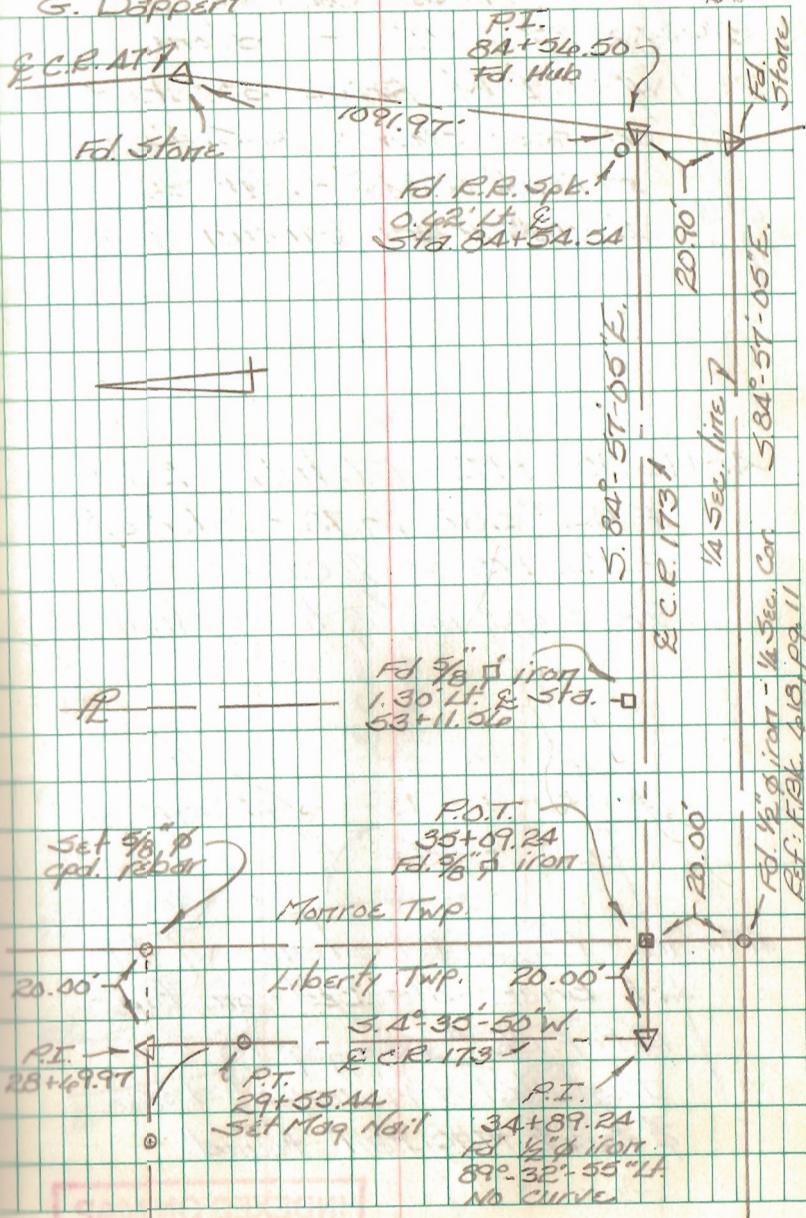 G. Dappert
℄ C.R. 477
Fd. Stone
1091.97'
P.I.
84+56.50
Fd. Hub
Fd.
Stone
Fd. R.R. Spk.
0.62' Lt. ℄
Sta. 84+54.54
20.90'
S. 84°-57'-05" E.
℄ C.R. 173
1/4 Sec. line
S. 84°-57'-05" E.
℄
Fd 5/8" ⌀ iron
1.30' Lt. ℄ Sta.
53+11.56
P.O.T.
35+09.24
Fd. 5/8" ⌀ iron
20.00'
Fd. 1/2" ⌀ iron - 1/4 Sec. Cor.
Ref: F.Bk. 618, pg. 11
Set 5/8" ⌀
cpd. rebar
Monroe Twp.
Liberty Twp.
20.00'
20.00'
S. 4°-35'-50" W.
℄ C.R. 173
P.I.
28+69.97
P.T.
29+55.44
Set Mag Nail
P.I.
34+89.24
Fd 1/2" ⌀ iron
89°-32'-55" Lt.
No Curve